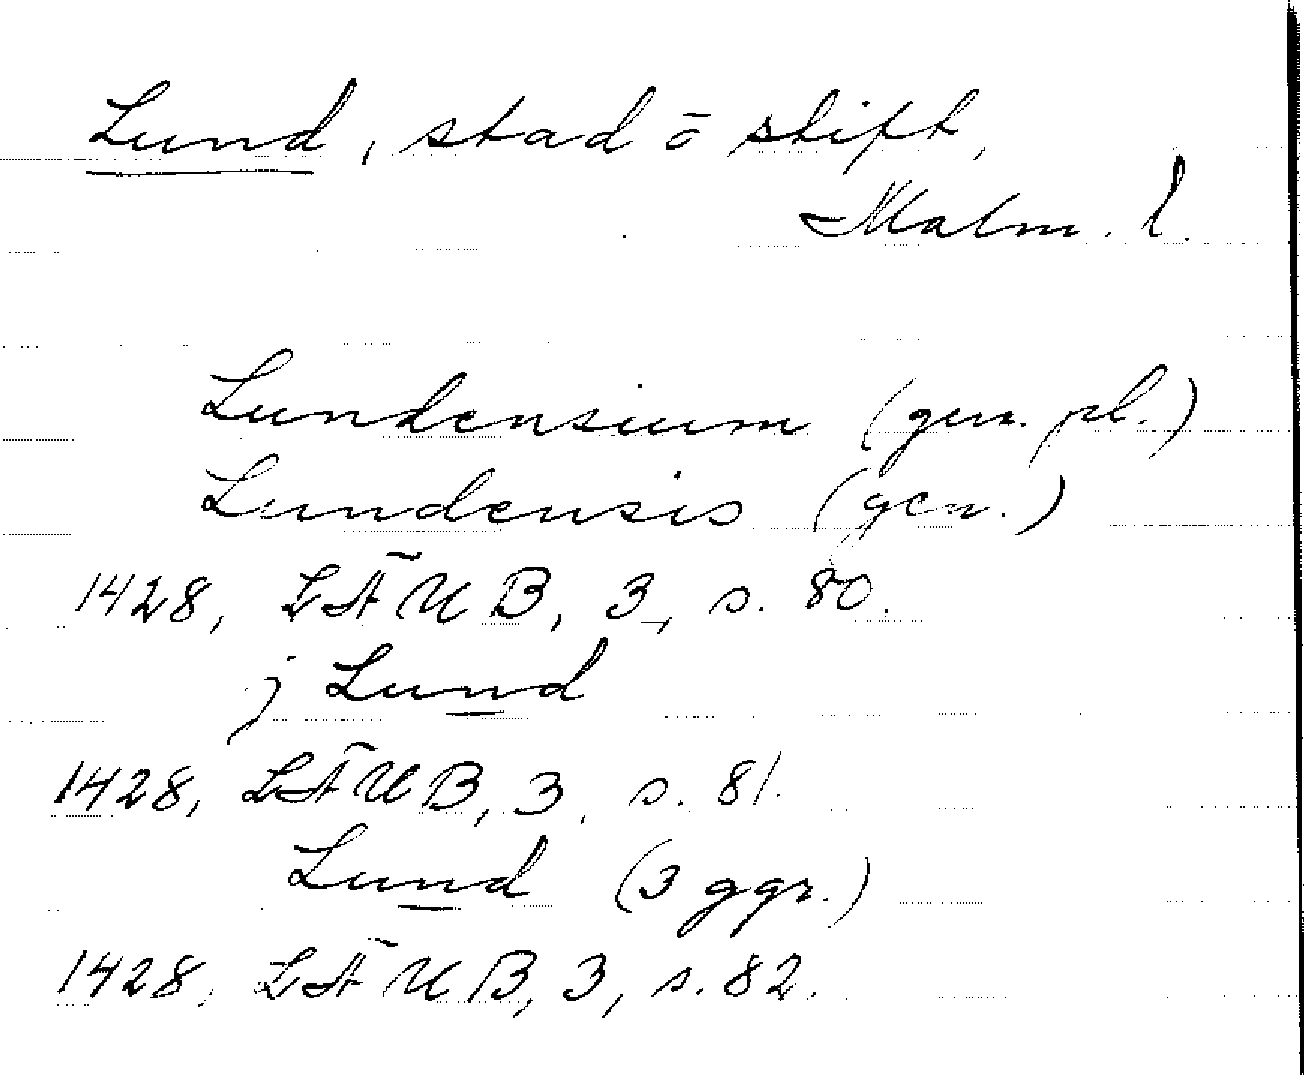 Lund, stad ō stift,
Malm. l.
Lundensium (gen. pl.)
Lundensis (gen.)
1428, LÄUB, 3, s. 80.
j Lund
1428, LÄUB, 3, s. 81.
Lund (3 ggr.)
1428, LÄUB, 3, s. 82.